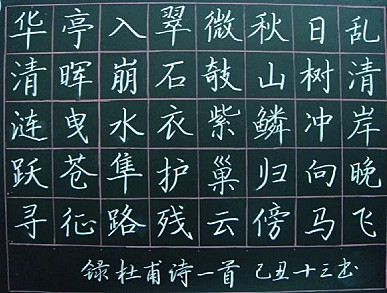 华亭入翠微秋日乱
清晖崩石攲山树清
涟曳水衣紫鳞冲岸
跃苍隼护巢归向晚
寻征路残云傍马飞
録杜甫诗一首 己丑十三书